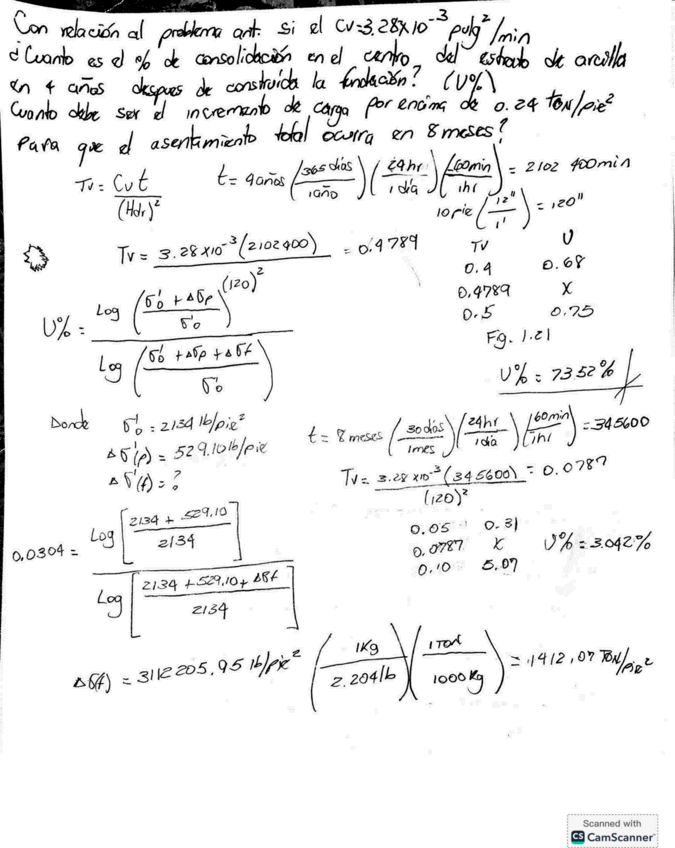 Con relación al problema ant. si el Cv=3.28x10⁻³ pulg²/min
¿Cuanto es el % de consolidación en el centro del estrato de arcilla
en 4 años despues de construida la fundación? (U%)
Cuanto debe ser el incremento de carga por encima de 0.24 TON/pie²
Para que el asentamiento total ocurra en 8 meses?
Tv = Cv t / (Hdr)²
t = 4años (365 dias / 1año) (24hr / 1 día) (60min / 1hr) = 2102 400min
10 pie (12" / 1') = 120"
Tv = 3.28 x10⁻³ (2102400) / (120)² = 0.4789
TV U
0.4 0.68
0.4789 X
0.5 0.75
Fg. 1.21
U% = Log (σ'o + Δσp / σ'o) / Log (σ'o + Δσp + Δσf / σ'o)
U% = 73.52%
Donde σ'o = 2134 lb/pie²
Δσ'(p) = 529.10 lb/pie
Δσ'(f) = ?
t = 8 meses (30 días / 1mes) (24hr / 1dia) (60min / 1hr) = 345600
Tv = 3.28 x10⁻³ (345600) / (120)² = 0.0787
0.05 0.31
0.0787 X
0.10 5.07
U% = 3.042%
0.0304 = Log [2134 + 529.10 / 2134] / Log [2134 + 529.10 + Δδf / 2134]
Δδ(f) = 3112205.95 lb/pie² (1Kg / 2.204lb) (1TON / 1000Kg) = 1412,07 TON/pie²
Scanned with
CS CamScanner